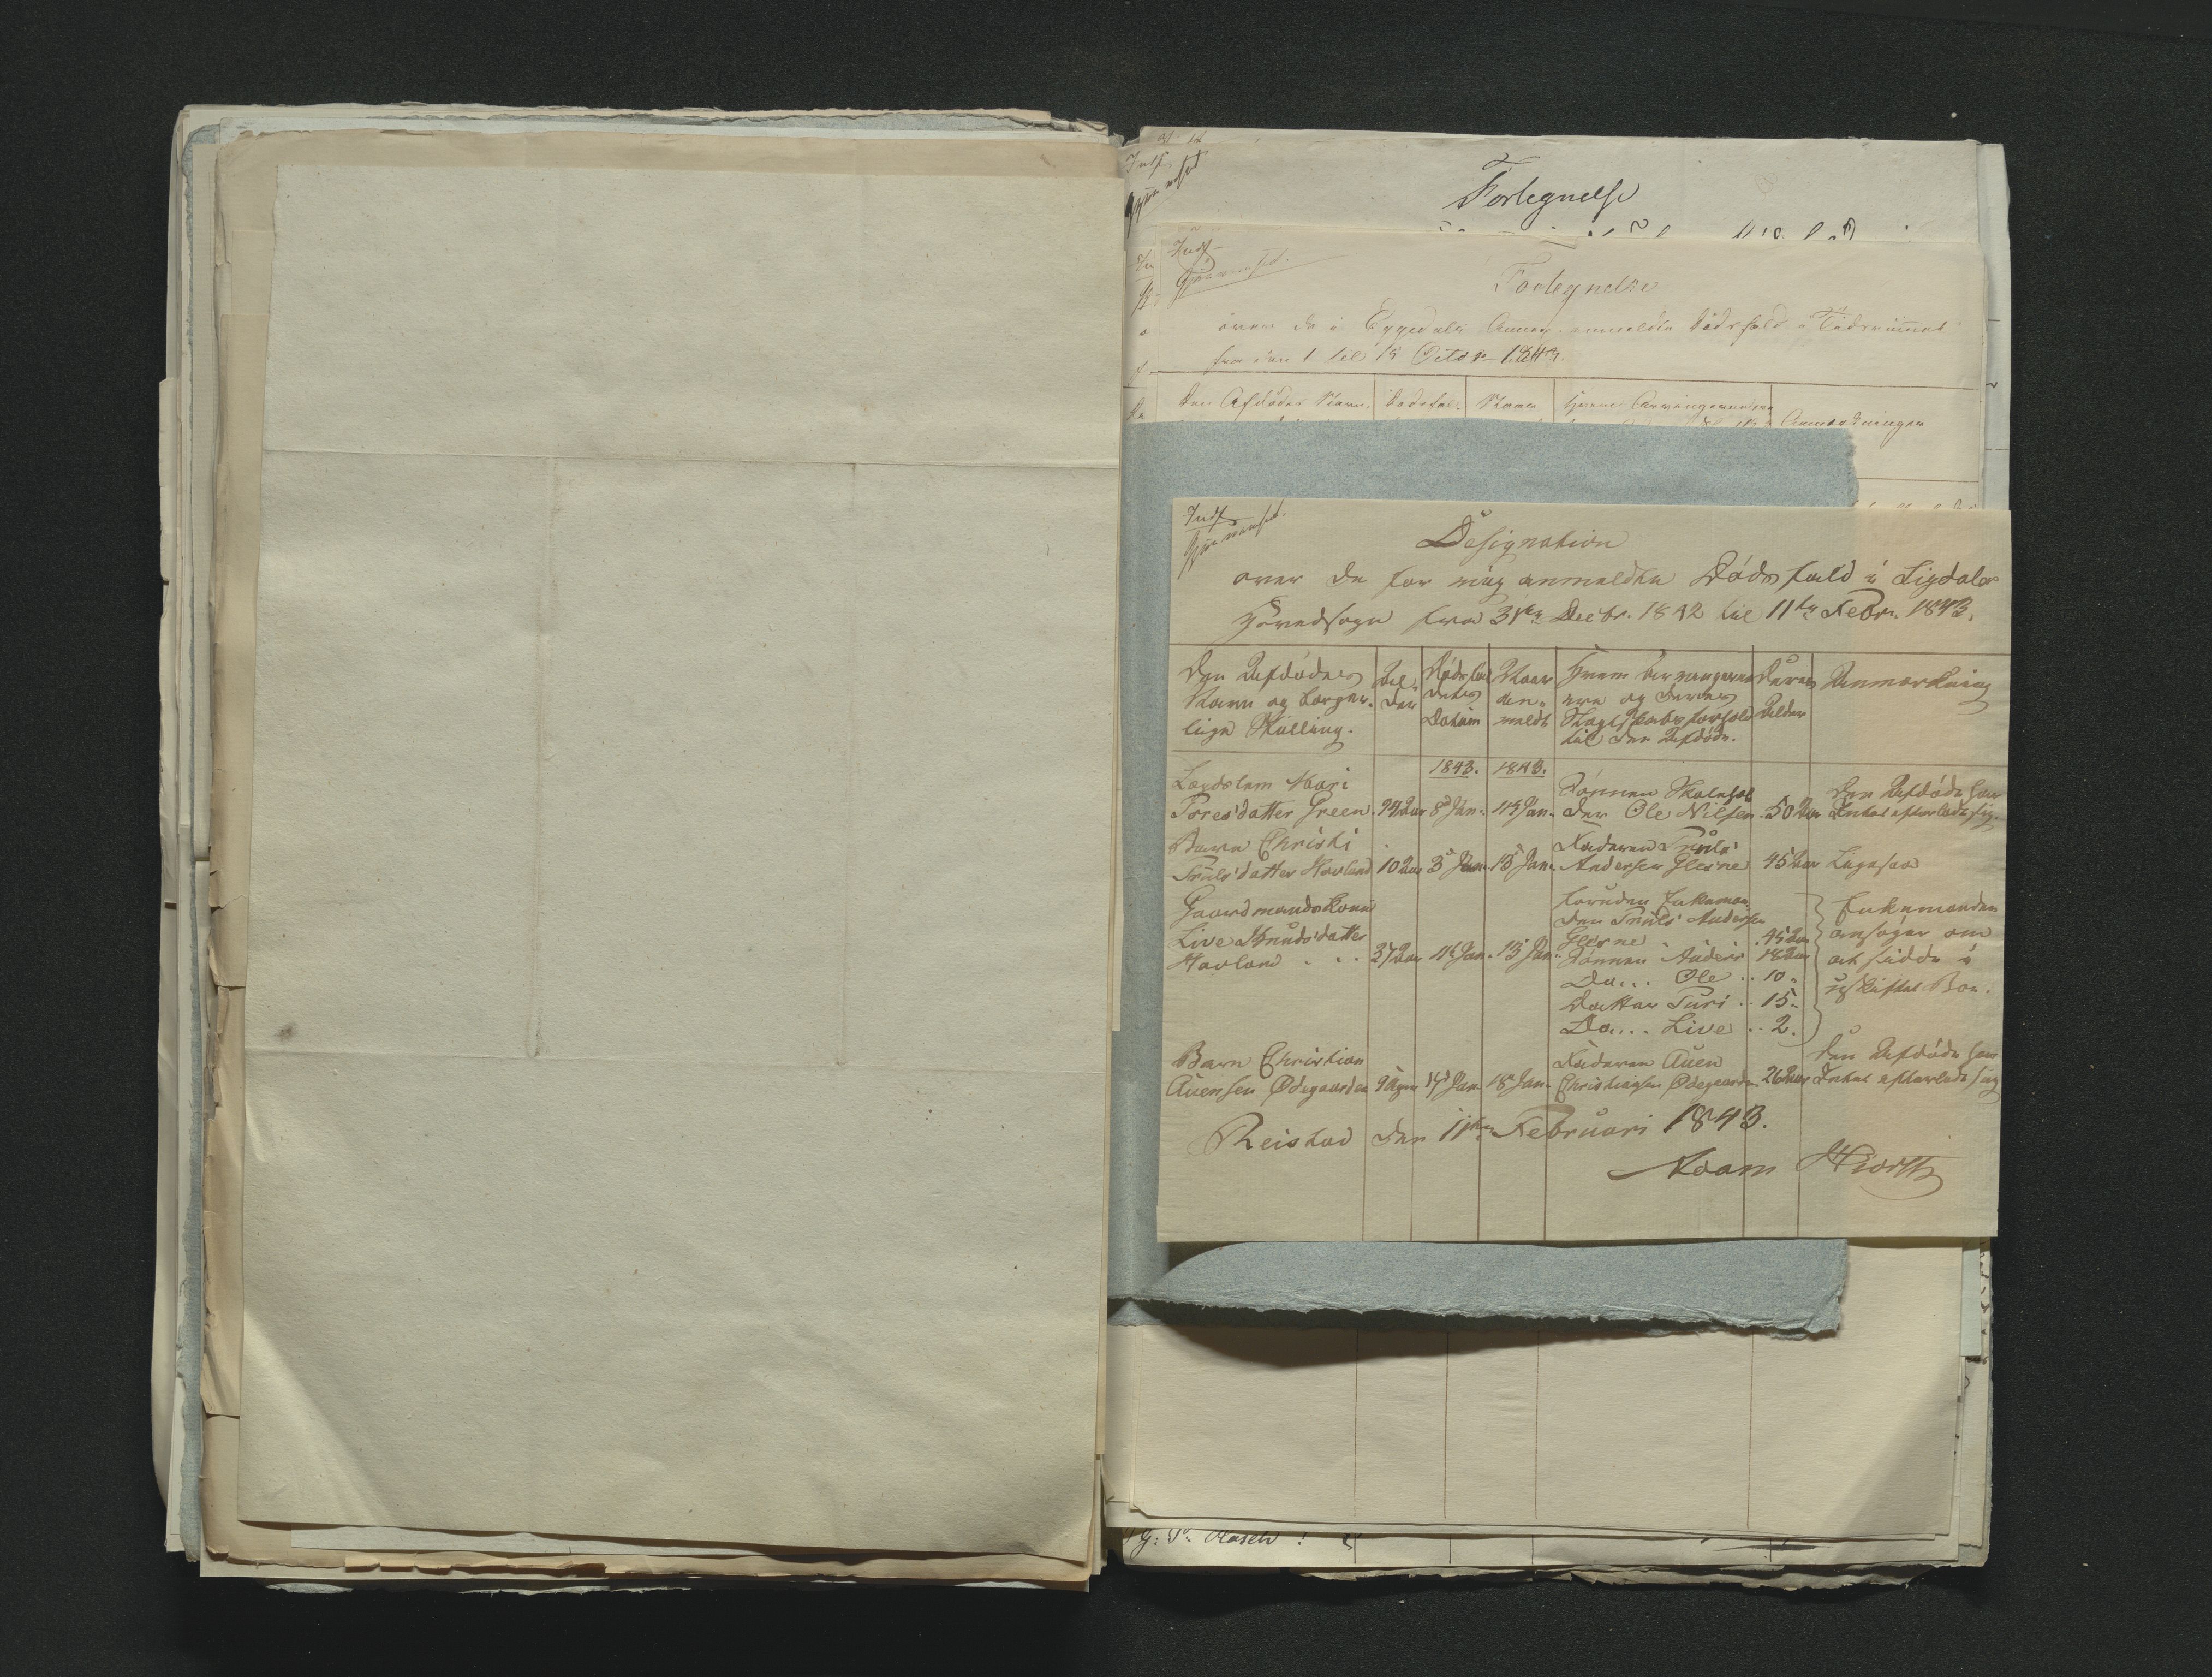 Forlegnelse
Indf
Forlegnelse
over de i Eggedals Annex anmeldte Dødsfald i Tidsrummet
fra den 1 til 15 Octbr 1843.
Den Afdødes Navn. Dødsfald. Naar Anmærkninger
Indf
Designation
over de for mig anmeldte Dødsfald i Sigdals
Hovedsogn fra 31te Decbr. 1842 til 11te Febr. 1843.
Den Afdødes
Navn og borger-
lige Stilling.
Al-
der
Dødsfal
dets
Datum
Naar
an-
meldt
Hvem Arvingerne
ere og deres
Slægtskabsforhold
til den Afdøde.
Deres
Alder
Anmærkning
1843. 1843.
Lægdslem Mari
Tores'datter Green. 94 Aar 8 Jan. 14 Jan.
Sønnen Skolehol
der Ole Nilsen. 50 Aar
Den Afdøde har
Intet efterladt sig.
Barn Christi
Truls'datter Havland 10 Aar 3 Jan. 15 Jan.
Faderen Truls'
Andersen Glesne 45 Aar Ligesaa
Gaardmandskone
Live Knuds'datter
Havland . . . 37 Aar 11 Jan. 15 Jan.
foruden Enkeman
den Truls' Andersen
Glesne 45 Aar
Sønnen Anders 18 Aar
Do... Ole .. 10 "
Datter Turi .. 15 "
Do.... Live .. 2.
Enkemanden
ansøger om
at sidde i
uskiftet Boe.
Barn Christian
Auensen Ødegaarden 9 Uger 14 Jan 18 Jan.
Faderen Auen
Christiansen Ødegaarden 26 Aar
Den Afdøde har
Intet efterladt sig
Reistad den 11te Februari 1843.
Noam Hiorth